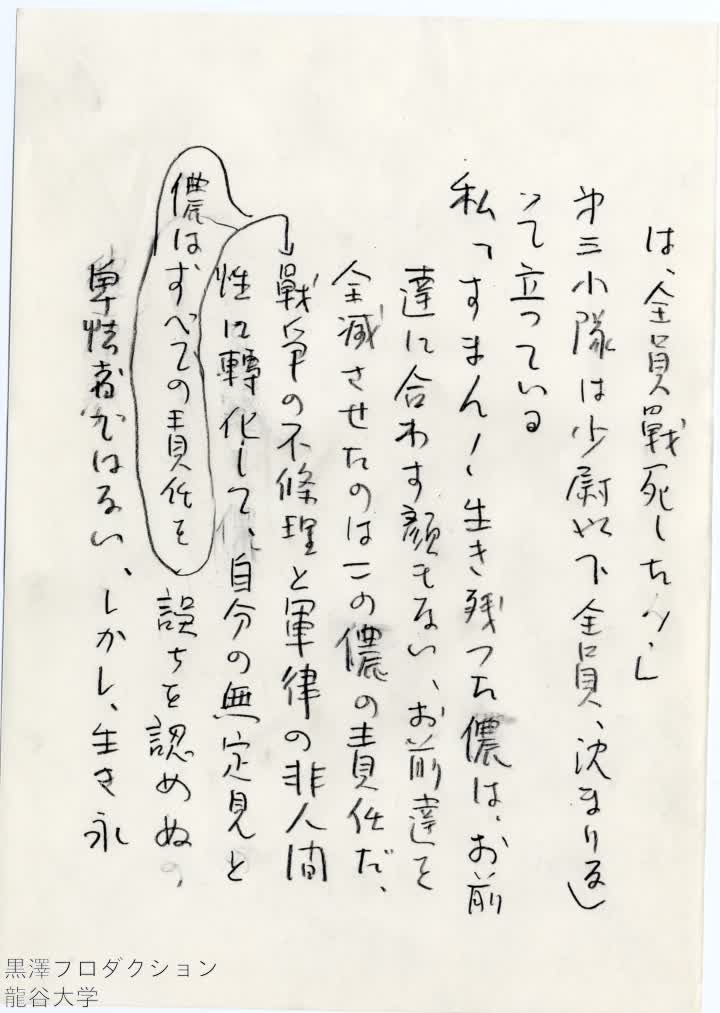 は、全員戰死したんだ」
第三小隊は少尉以下全員、沈まりかえ
って立っている
私「すまん！生き残った儂は、お前
達に合わす顔もない、お前達を
全滅させたのはこの儂の責任だ、
戰争の不條理と軍律の非人間
性に轉化して、自分の無定見と
儂はすべての責任を
誤ちを認めぬ、
卑怯者ではない、しかし、生き永
黒澤プロダクション
龍谷大学